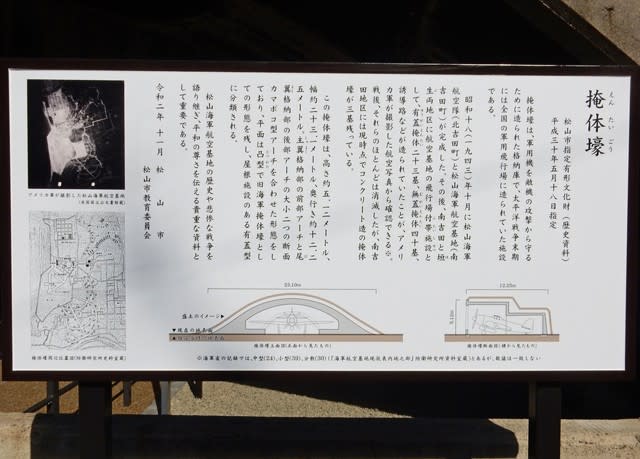 掩体壕
えんたいごう
松山市指定有形文化財（歴史資料）
平成三十年五月十八日指定
掩体壕は、軍用機を敵機の攻撃から守る
ために造られた格納庫で、太平洋戦争末期
には全国の軍用飛行場に造られていた施設
である。
昭和十八（一九四三）年十月に松山海軍
航空隊（北吉田町）と松山海軍航空基地（南
吉田町）が完成した。その後、南吉田と垣
生両地区に航空基地の飛行場付帯施設と
して、有蓋掩体二十三基、無蓋掩体四十基、
誘導路などが造られていたことが、アメリ
カ軍が撮影した航空写真から確認できる※。
戦後、それらのほとんどは消滅したが、南吉
田地区には現時点でコンクリート造の掩体
壕が三基残っている。
この掩体壕は、高さ約五．一二メートル、
幅約二十三．一メートル、奥行き約十二．二
五メートル、主翼格納部の前部アーチと尾
翼格納部の後部アーチの大小二つの断面
カマボコ型アーチを合わせた形態をし
ており、平面は凸型で旧海軍掩体壕とし
ての形態を残し、屋根施設のある有蓋型
に分類される。
松山海軍航空基地の歴史や悲惨な戦争を
語り継ぎ、平和の尊さを伝える貴重な資料と
して重要である。
令和二年十一月 松山市
松山市教育委員会
アメリカ軍が撮影した松山海軍航空基地
掩体壕周辺位置図（防衛研究所史料室蔵）
23.10m
盛土のイメージ▶
▼現在の地表面
掩体壕正面図（正面から見たもの）
12.25m
5.12m
掩体壕断面図（横から見たもの）
※海軍省の記録では、中型（24）、小型（39）、分散（30）（『海軍航空基地現状表内地之部』防衛研究所資料室蔵）とあるが、数値は一致しない